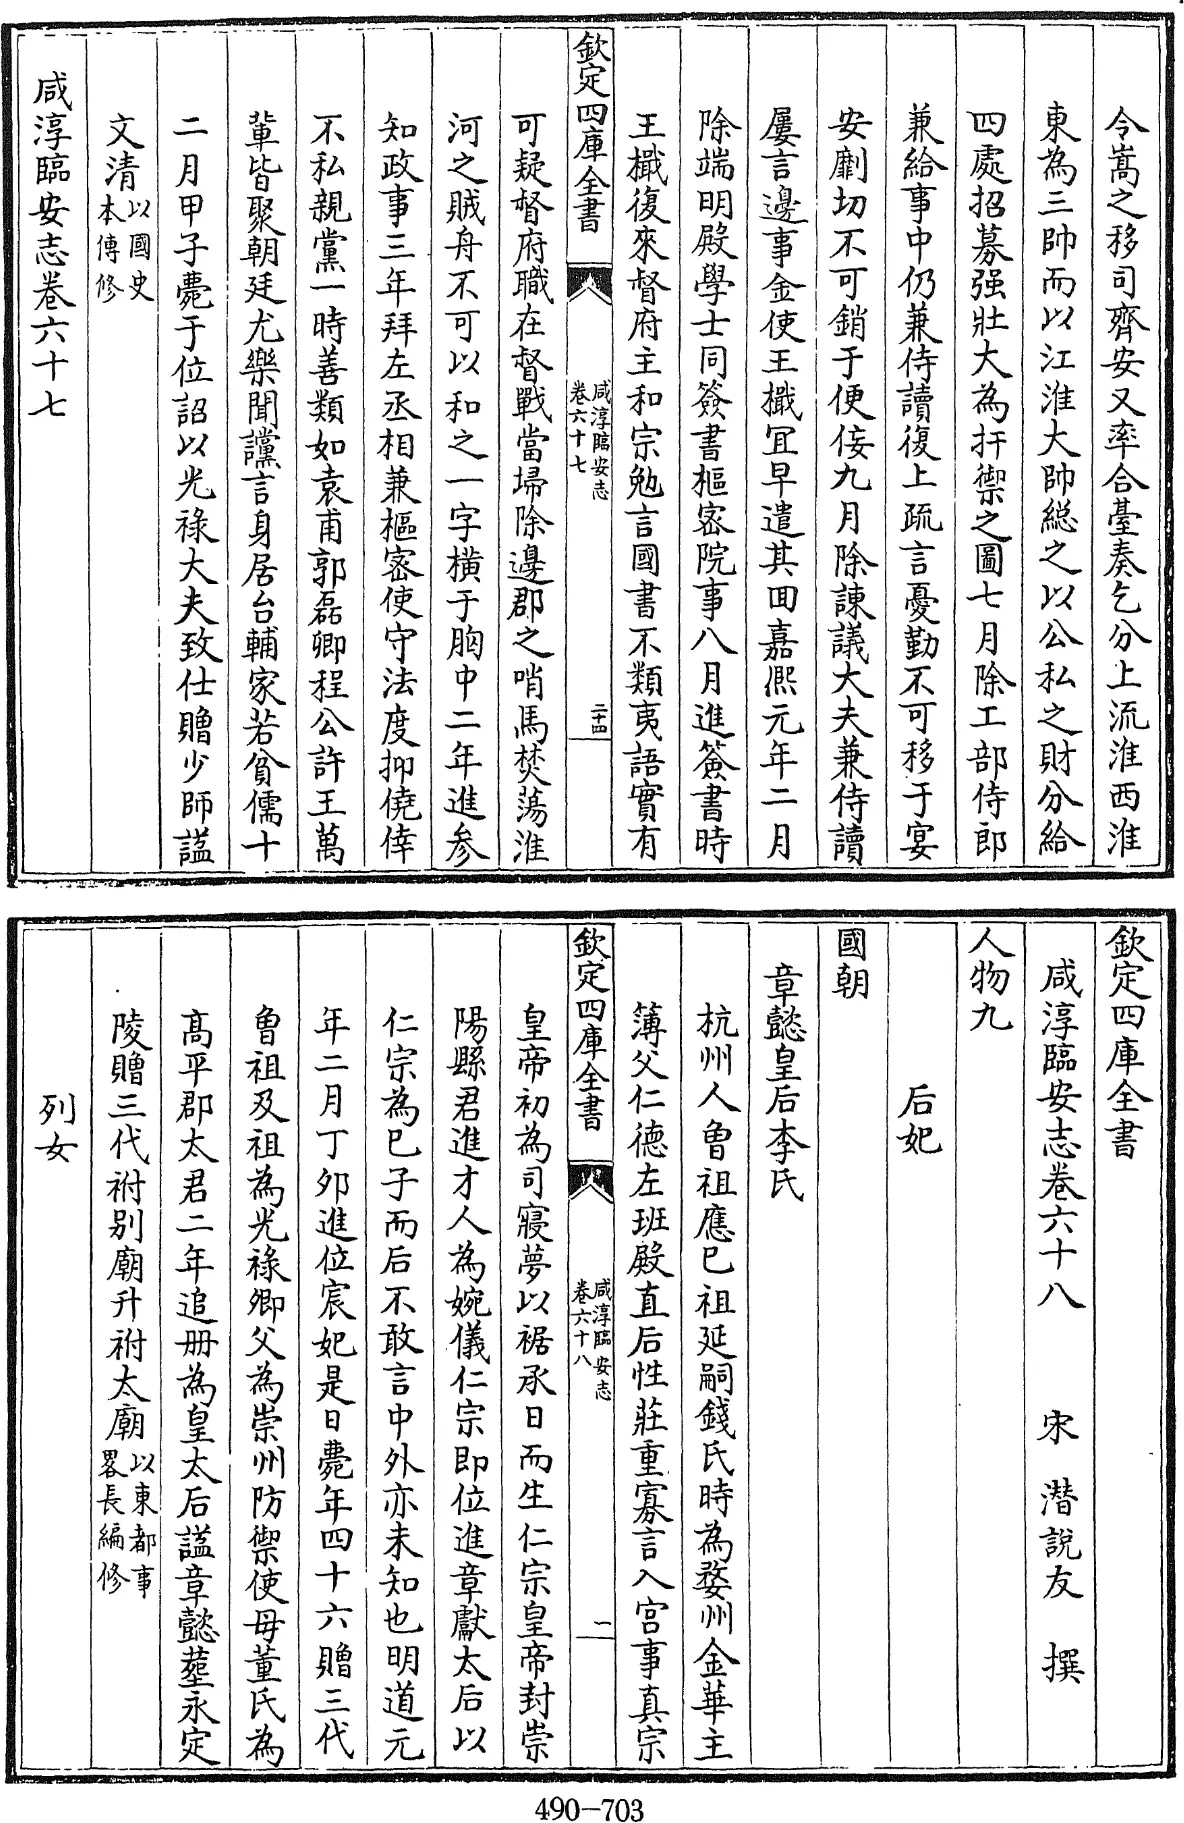 令嵩之移司齊安又率合臺奏乞分上流淮西淮
東為三帥而以江淮大帥總之以公私之財分給
四處招募强壯大為扞禦之圖七月除工部侍郎
兼給事中仍兼侍讀復上疏言憂勤不可移于宴
安劘切不可銷于便佞九月除諫議大夫兼侍讀
屢言邊事金使王檝冝早遣其囬嘉熈元年二月
除端明殿學士同簽書樞宻院事八月進簽書時
王檝復來督府主和宗勉言國書不類夷語實有
欽定四庫全書
咸淳臨安志
卷六十七
二十四
可疑督府職在督戰當埽除邊郡之哨馬焚蕩淮
河之賊舟不可以和之一字横于胸中二年進參
知政事三年拜左丞相兼樞宻使守法度抑僥倖
不私親黨一時善類如袁甫郭磊卿程公許王萬
輩皆聚朝廷尤樂聞讜言身居台輔家若貧儒十
二月甲子薨于位詔以光祿大夫致仕贈少師謚
文清以國史
本傳修
咸淳臨安志卷六十七
欽定四庫全書
咸淳臨安志卷六十八 宋 潛說友 撰
人物九
后妃
國朝
章懿皇后李氏
杭州人曾祖應已祖延嗣錢氏時為婺州金華主
簿父仁德左班殿直后性莊重寡言入宮事真宗
欽定四庫全書
咸淳臨安志
卷六十八
一
皇帝初為司寢夢以裾承日而生仁宗皇帝封崇
陽縣君進才人為婉儀仁宗即位進章獻太后以
仁宗為已子而后不敢言中外亦未知也明道元
年二月丁夘進位宸妃是日薨年四十六贈三代
曾祖及祖為光祿卿父為崇州防禦使母董氏為
髙平郡太君二年追冊為皇太后謚章懿塟永定
陵贈三代祔别廟升祔太廟以東都事
畧長編修
列女
490-703